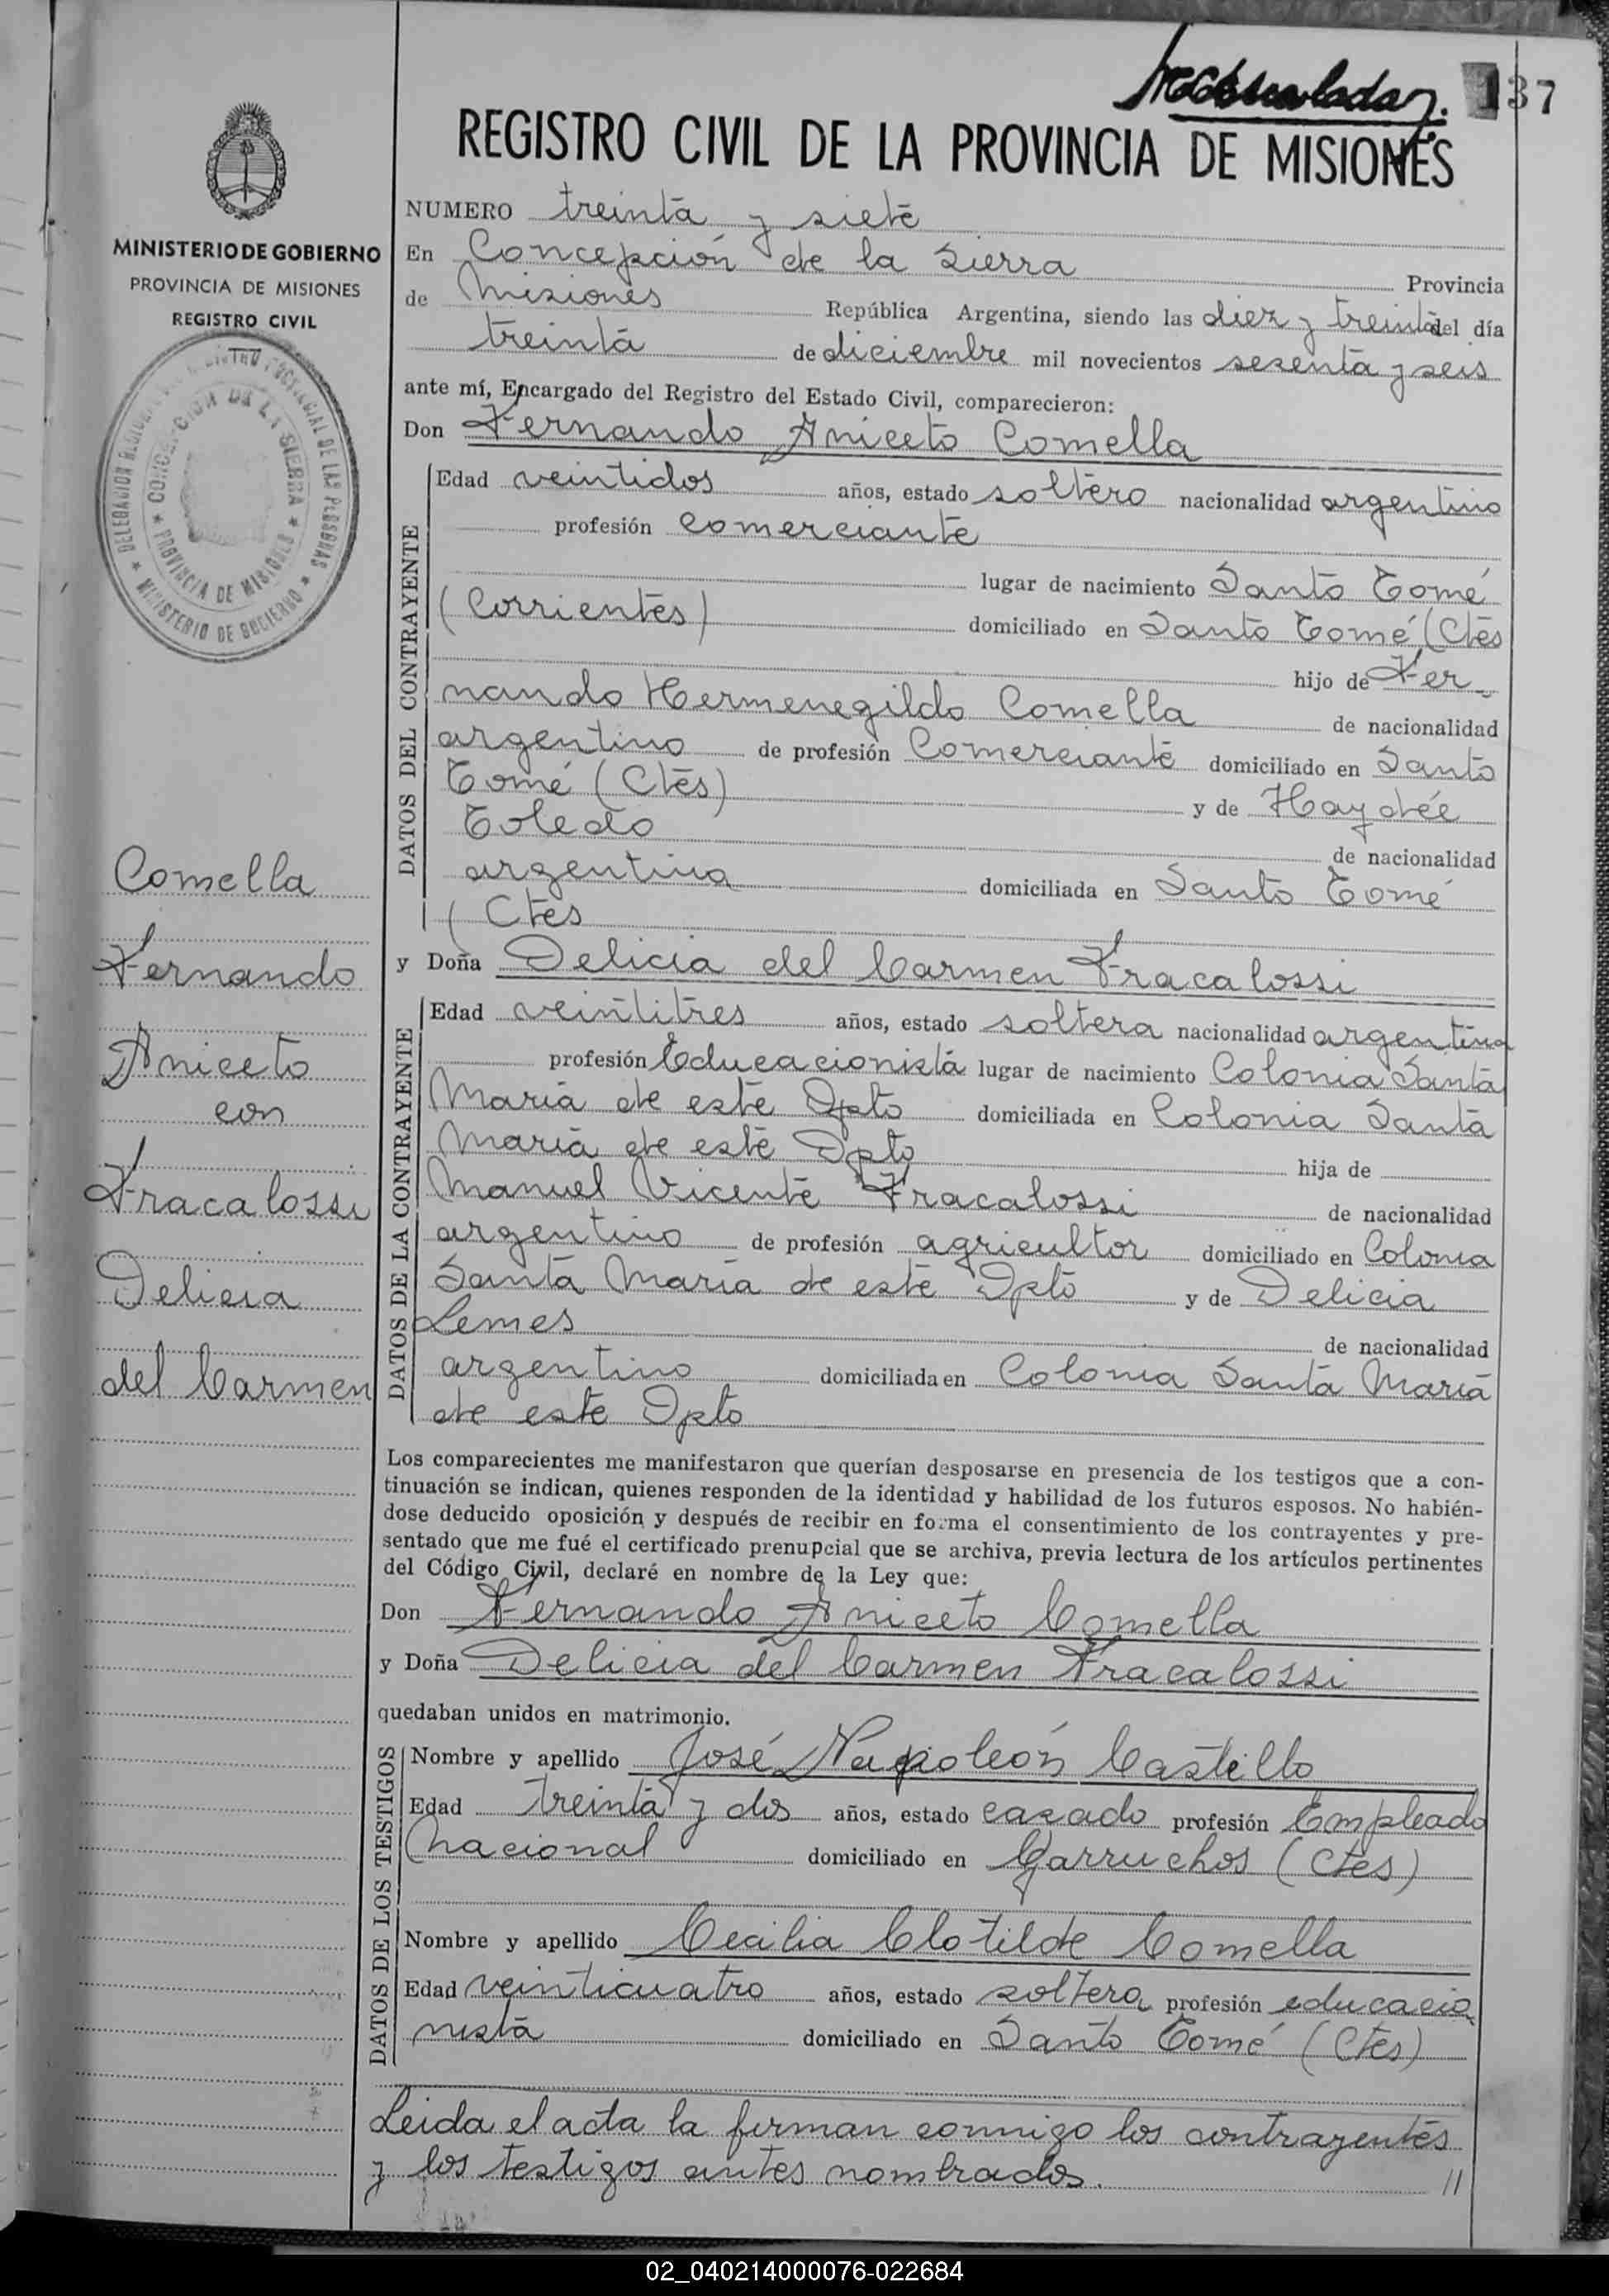 137
REGISTRO CIVIL DE LA PROVINCIA DE MISIONES
MINISTERIO DE GOBIERNO
PROVINCIA DE MISIONES
REGISTRO CIVIL
DE LAS PERSONAS
CONCEPCION DE LA SIERRA
PROVINCIA DE MISIONES
MINISTERIO DE GOBIERNO
Comella
Fernando
Aniceto
con
Fracalossi
Delicia
del Carmen
NUMERO treinta y siete
En Concepción de la Sierra Provincia
de Misiones República Argentina, siendo las diez y treinta del día
treinta de diciembre mil novecientos sesenta y seis
ante mí, Encargado del Registro del Estado Civil, comparecieron:
Don Fernando Aniceto Comella
DATOS DEL CONTRAYENTE
Edad veintidos años, estado soltero nacionalidad argentino
profesión comerciante
lugar de nacimiento Santo Tomé
(Corrientes) domiciliado en Santo Tomé (Ctes
hijo de Fer-
nando Hermenegildo Comella de nacionalidad
argentino de profesión Comerciante domiciliado en Santo
Tomé (Ctes) y de Haydée
Toledo de nacionalidad
argentina domiciliada en Santo Tomé
(Ctes
y Doña Delicia del Carmen Fracalossi
DATOS DE LA CONTRAYENTE
Edad veintitres años, estado soltera nacionalidad argentina
profesión Educacionista lugar de nacimiento Colonia Santa
María de este Dpto domiciliada en Colonia Santa
María de este Dpto hija de
Manuel Vicente Fracalossi de nacionalidad
argentino de profesión agricultor domiciliado en Colonia
Santa María de este Dpto y de Delicia
Lemes de nacionalidad
argentino domiciliada en Colonia Santa María
de este Dpto
Los comparecientes me manifestaron que querían desposarse en presencia de los testigos que a con-
tinuación se indican, quienes responden de la identidad y habilidad de los futuros esposos. No habién-
dose deducido oposición y después de recibir en forma el consentimiento de los contrayentes y pre-
sentado que me fué el certificado prenupcial que se archiva, previa lectura de los artículos pertinentes
del Código Civil, declaré en nombre de la Ley que:
Don Fernando Aniceto Comella
y Doña Delicia del Carmen Fracalossi
quedaban unidos en matrimonio.
DATOS DE LOS TESTIGOS
Nombre y apellido José Napoleón Castillo
Edad treinta y dos años, estado casado profesión Empleado
Nacional domiciliado en Garruchos (Ctes)
Nombre y apellido Cecilia Clotilde Comella
Edad veinticuatro años, estado soltera profesión educacio
nista domiciliado en Santo Tomé (Ctes)
Leida el acta la firman conmigo los contrayentes
y los testigos antes nombrados. //
02_040214000076-022684